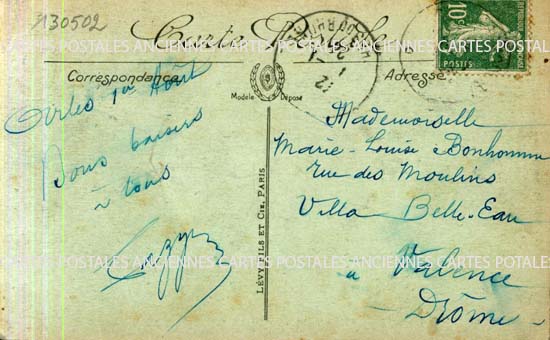 130502
Carte Postale
CARTES POSTALES ANCIENNES CARTES POSTALES ANCIENNES CARTES POSTALES
Correspondance
Adresse
Modèle Déposé
10c
POSTES
Arles 1er Août
Bons baisers
à tous
LÉVY FILS ET Cie, PARIS
Mademoiselle
Marie-Louise Bonhomme
rue des Moulins
Villa Belle-Eau
à Valence
Drôme
CARTES POSTALES ANCIENNES CARTES POSTALES ANCIENNES CARTES POSTALES